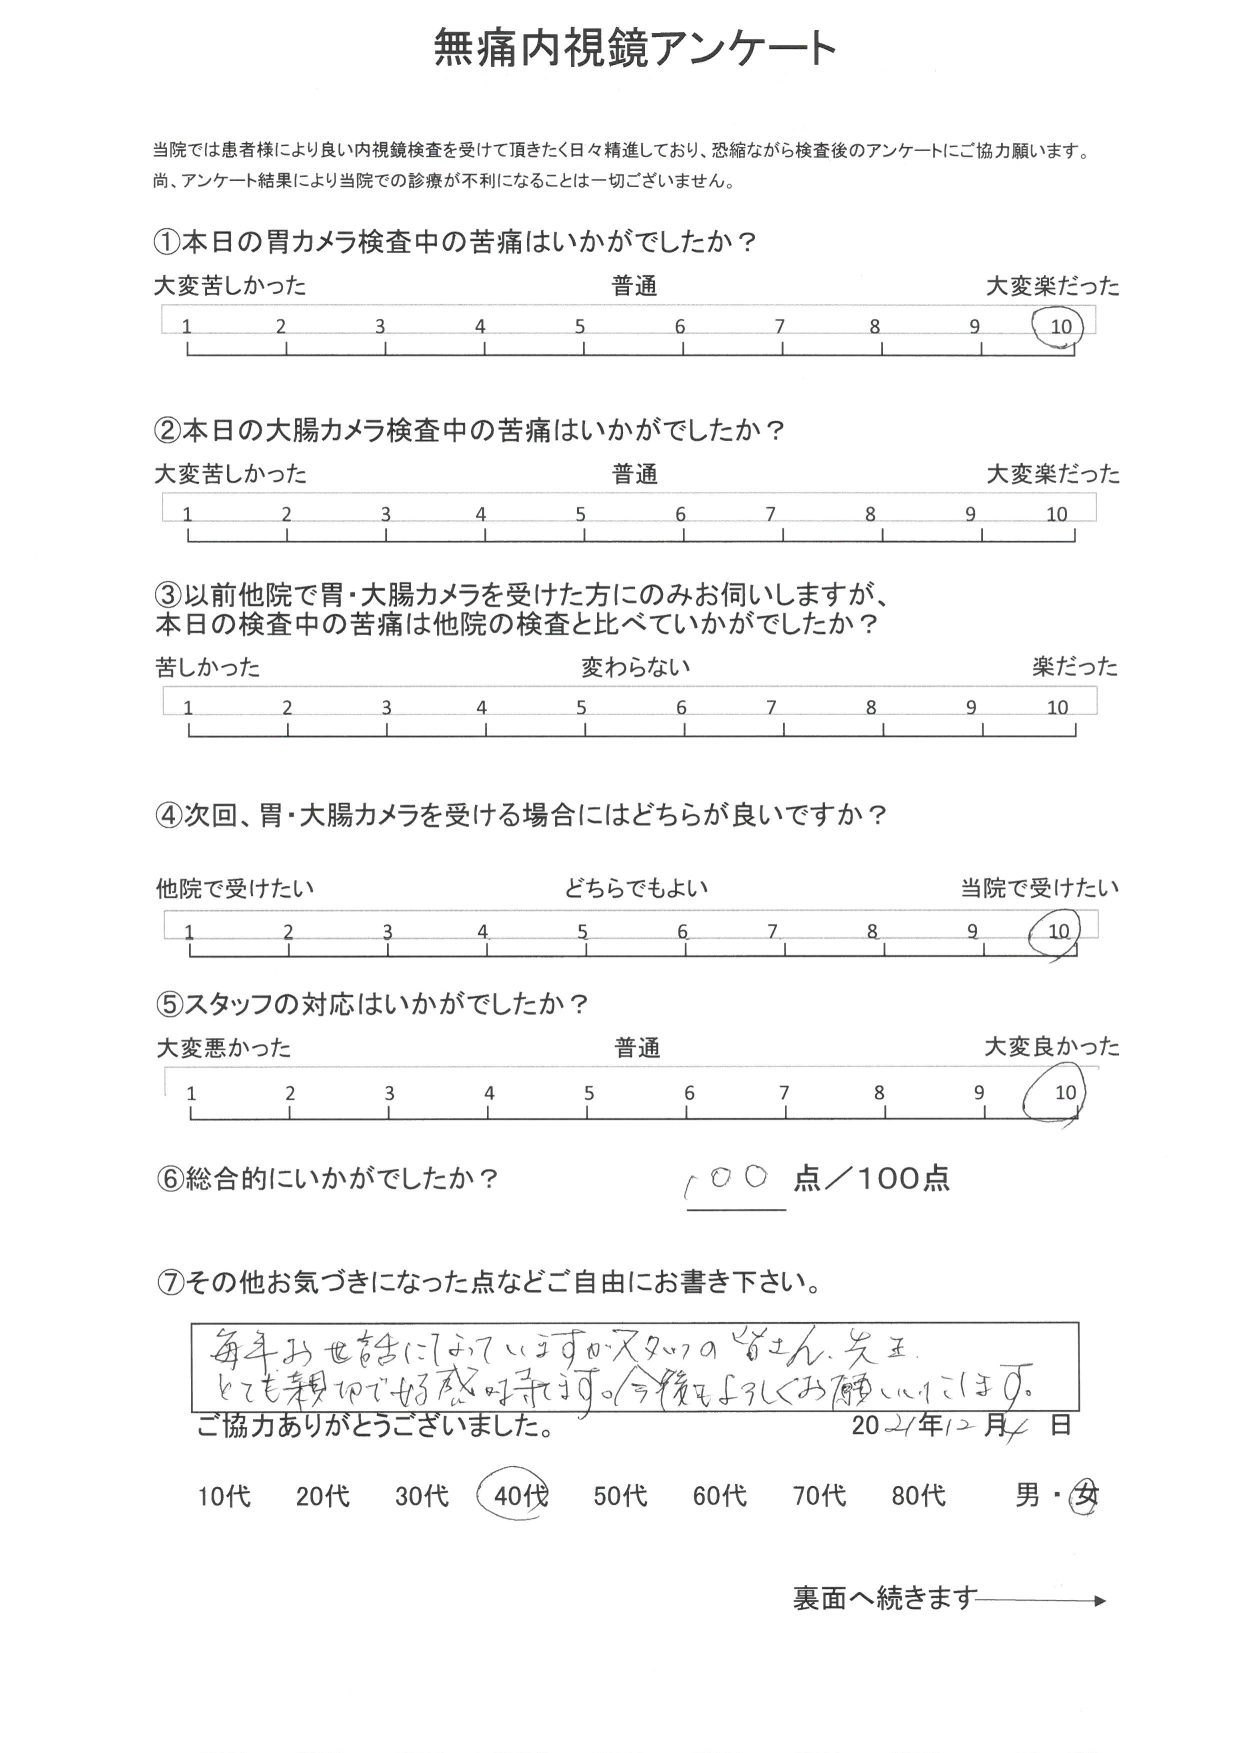 無痛内視鏡アンケート
当院では患者様により良い内視鏡検査を受けて頂きたく日々精進しており、恐縮ながら検査後のアンケートにご協力願います。
尚、アンケート結果により当院での診療が不利になることは一切ございません。
①本日の胃カメラ検査中の苦痛はいかがでしたか？
大変苦しかった 普通 大変楽だった
1 2 3 4 5 6 7 8 9 10
②本日の大腸カメラ検査中の苦痛はいかがでしたか？
大変苦しかった 普通 大変楽だった
1 2 3 4 5 6 7 8 9 10
③以前他院で胃・大腸カメラを受けた方にのみお伺いしますが、
本日の検査中の苦痛は他院の検査と比べていかがでしたか？
苦しかった 変わらない 楽だった
1 2 3 4 5 6 7 8 9 10
④次回、胃・大腸カメラを受ける場合にはどちらが良いですか？
他院で受けたい どちらでもよい 当院で受けたい
1 2 3 4 5 6 7 8 9 10
⑤スタッフの対応はいかがでしたか？
大変悪かった 普通 大変良かった
1 2 3 4 5 6 7 8 9 10
⑥総合的にいかがでしたか？ 100 点／100点
⑦その他お気づきになった点などご自由にお書き下さい。
毎年お世話になっていますがスタッフの皆さん、先生
とても親切で好感が持てます。今後もよろしくお願いいたします。
ご協力ありがとうございました。 2021年12月4日
10代 20代 30代 40代 50代 60代 70代 80代 男・女
裏面へ続きます